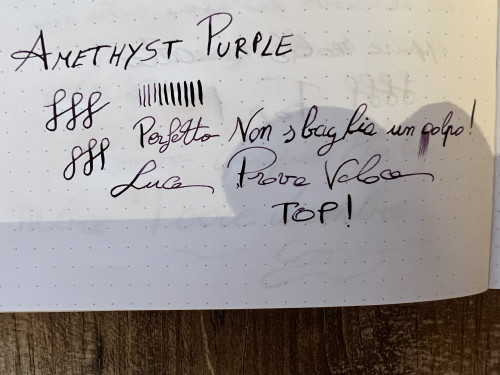 AMETHYST PURPLE
fff
Perfetto Non sbaglia un colpo!
fff
Luca Prova Veloce
TOP!